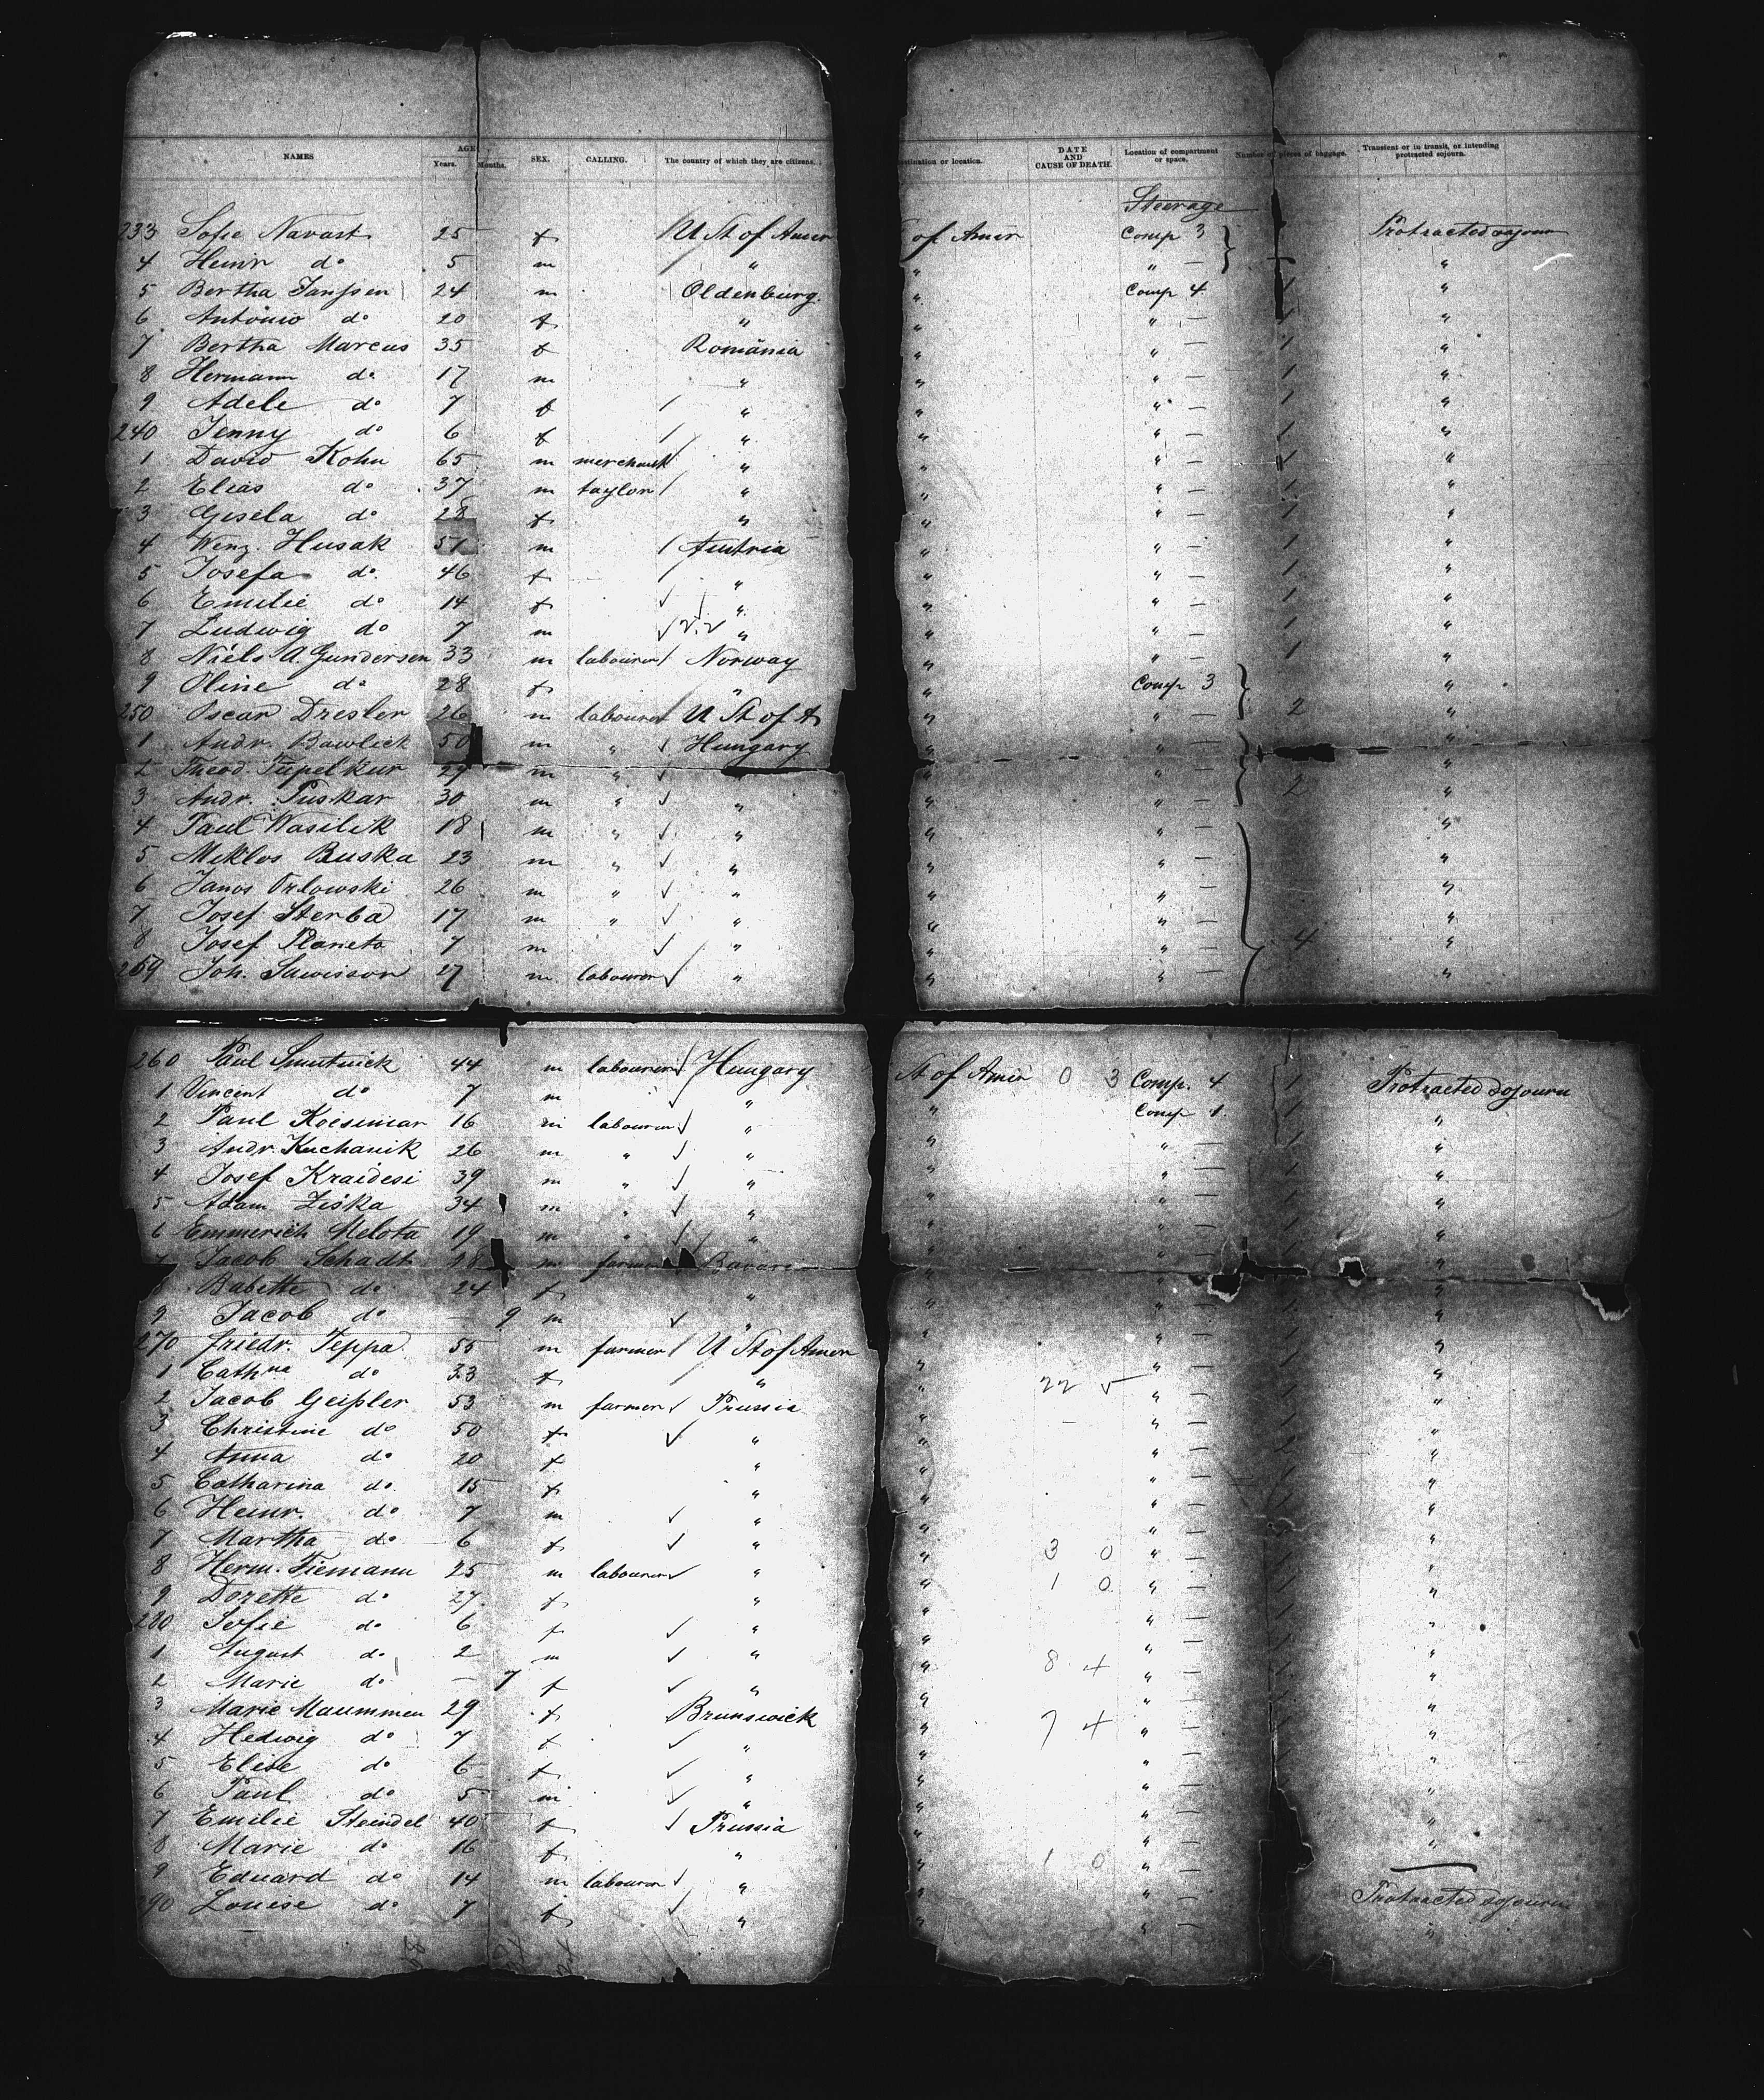 NAMES AGE Years. Months. SEX. CALLING. The country of which they are citizens. destination or location. DATE AND CAUSE OF DEATH. Location of compartment or space. Number of pieces of baggage. Transient or in transit, or intending protracted sojourn.
Steerage
233 Sofie Navast 25 f U St of Amer of Amer Comp 3 Protracted sojourn
4 Heinr do 5 m " " " — "
5 Bertha Janssen 24 m Oldenburg. " Comp 4 1 "
6 Antonio do 20 f " " " — 1 "
7 Bertha Marcus 35 f Romänia " " — 1 "
8 Hermann do 17 m " " " — 1 "
9 Adele do 7 f " " " — 1 "
240 Jenny do 6 f " " " — 1 "
1 David Kohn 65 m merchant " " " — "
2 Elias do 37 m taylor " " " — 1 "
3 Gisela do 28 f " " " — 1 "
4 Wenz. Husak 51 m Austria " " — 1 "
5 Josefa do. 46 f " " " — 1 "
6 Emilie do 14 f " " " — 1 "
7 Ludwig do 7 m " " " — 1 "
8 Niels A. Gundersen 33 m labourer Norway " " — 1 "
9 Oline do 28 f " " Comp 3 "
250 Oscar Dresler 26 m labourer U St of A " " — 2 "
1 Andr. Bawlick 50 m " Hungary " " — "
2 Theod. Tupelkur 29 m " " "
3 Andr. Puskar 30 m " " " " — 2 "
4 Paul Wasilik 18 m " " " " — "
5 Miklos Buska 23 m " " " " — "
6 Janos Orlowski 26 m " " " " — "
7 Josef Sterba 17 m " " " " — "
8 Josef Planeta 7 m " " " — 4 "
259 Joh. 27 m labourer " " " — "
260 Paul Smutnick 44 m labourer Hungary St of Amer 0 3 Comp. 4 1 Protracted sojourn
1 Vincent do 7 m " " Comp 1. 1 "
2 Paul Kocsmar 16 m labourer " " " — 1 "
3 Andr. Kuchanik 26 m " " " " — 1 "
4 Josef Kraidesi 39 m " " " " — 1 "
5 Adam Ziska 34 m " " " " — 1 "
6 Emmerich Melota 19 m " " " " — 1 "
7 Jacob Schadt 28 m farmer Bavaria " "
8 Babette do 24 f " " " — "
9 Jacob do — 9 m " " " — "
270 Friedr. Teppa 55 m farmer U St of Amer " " — 1 "
1 Cathna do 33 f " " 22 " — 1 "
2 Jacob Geißler 53 m farmer Prussia " " — 1 "
3 Christine do 50 f " " " — "
4 Anna do 20 f " " " — 1 "
5 Catharina do. 15 f " " " — 1 "
6 Heinr. do 7 m " " " — 1 "
7 Martha do 6 f " " 3 0 " — 1 "
8 Herm. Tiemann 25 m labourer " " 1 0 " — 1 "
9 Dorette do 27 f " " " — 1 "
280 Sofie do 6 f " " " — 1 "
1 August do. 2 m " " 8 4 " — 1 "
2 Marie do — 7 f " " " — 1 "
3 Marie Maummen 29 f Brunswick " 7 4 " — 1 "
4 Hedwig do 7 f " " " — 1 "
5 Elise do 6 f " " " — 1 "
6 Paul do 5 m " " " — "
7 Emilie Steindel 40 f Prussia " " — "
8 Marie do 16 f " " 1 0 " —
9 Eduard do 14 m labourer " " " — Protracted sojourn
290 Louise do 7 f " " " — "